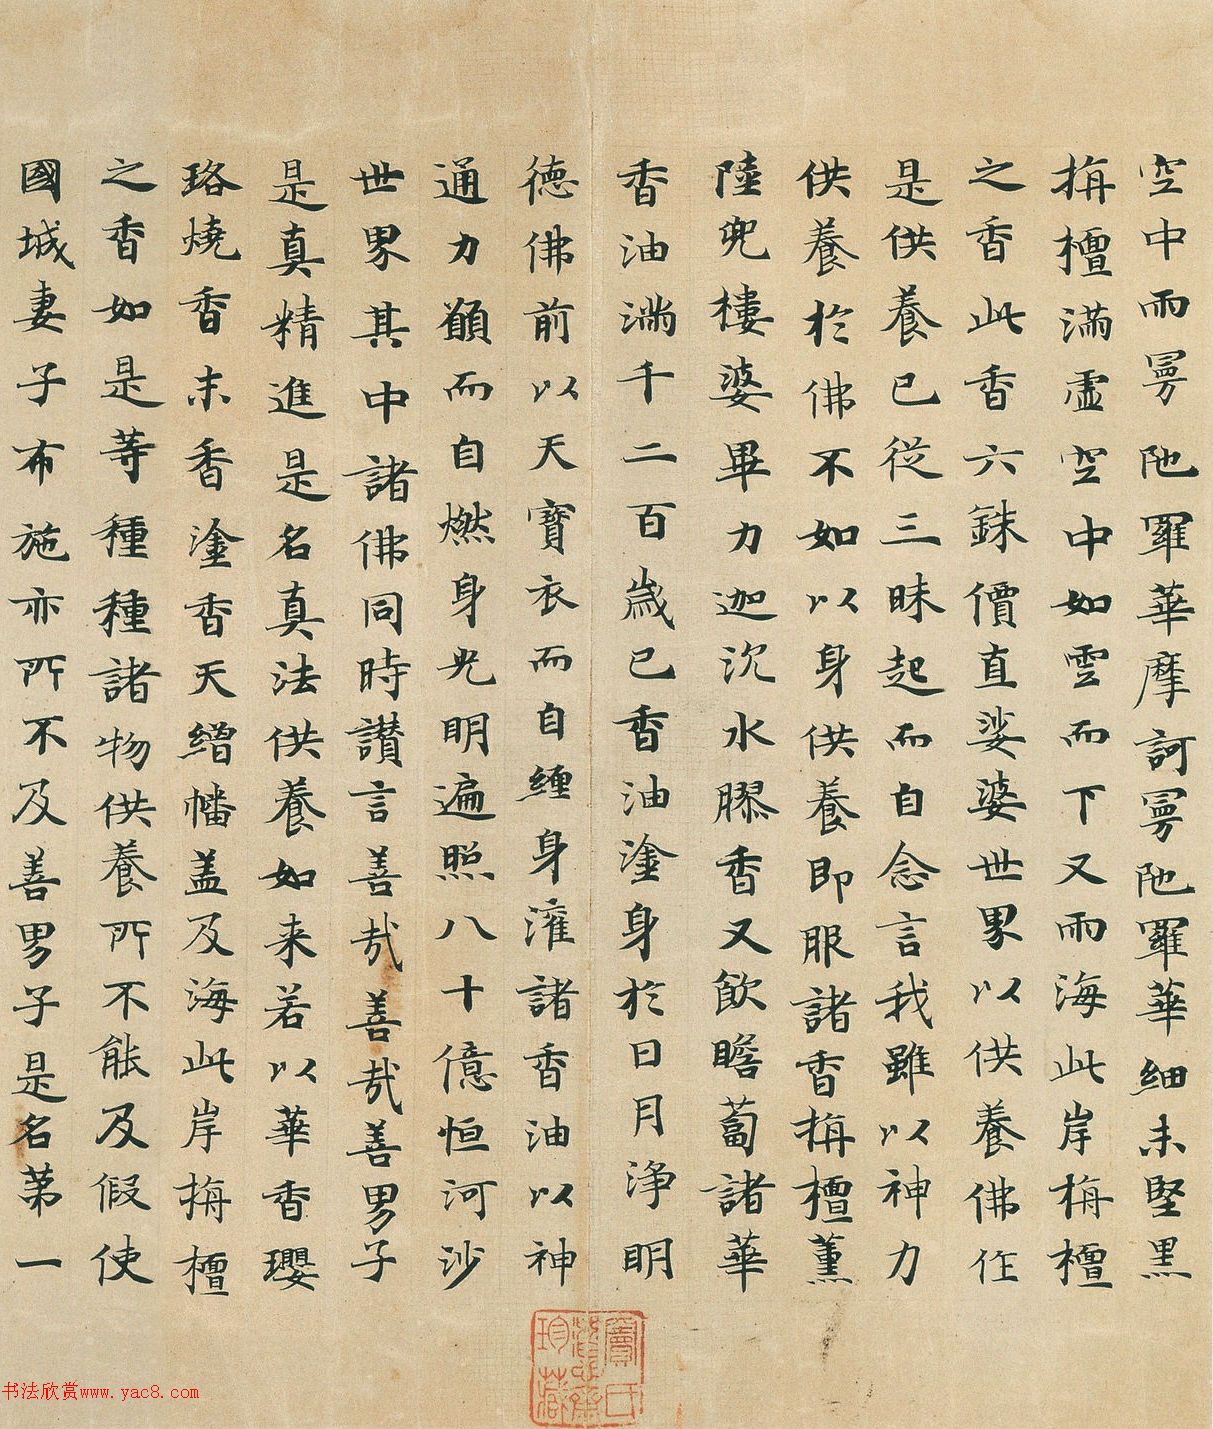 空中雨曼陁羅華摩訶曼陁羅華細末堅黑
栴檀滿虛空中如雲而下又雨海此岸栴檀
之香此香六銖價直娑婆世界以供養佛作
是供養已從三昧起而自念言我雖以神力
供養於佛不如以身供養即服諸香栴檀薰
陸兜樓婆畢力迦沉水膠香又飲瞻蔔諸華
香油滿千二百歲已香油塗身於日月淨明
德佛前以天寶衣而自纏身灌諸香油以神
通力願而自燃身光明遍照八十億恒河沙
世界其中諸佛同時讚言善哉善哉善男子
是真精進是名真法供養如来若以華香瓔
珞燒香末香塗香天繒幡盖及海此岸栴檀
之香如是等種種諸物供養所不能及假使
國城妻子布施亦所不及善男子是名第一
珍藏
书法欣赏www.yac8.com